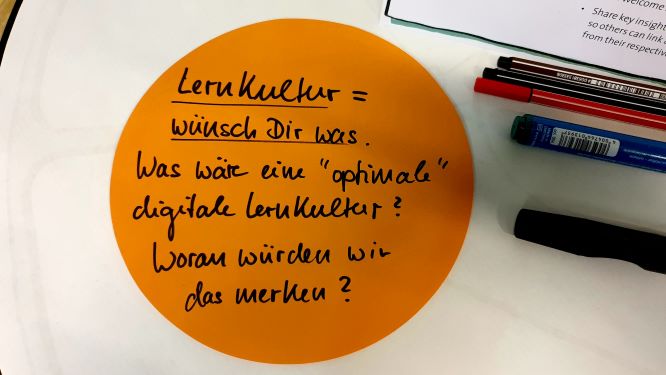 Welcome
• Share key insight
so others can link
from their respectiv
LernKultur =
wünsch Dir was.
Was wäre eine "optimale"
digitale LernKultur?
Woran würden wir
das merken?